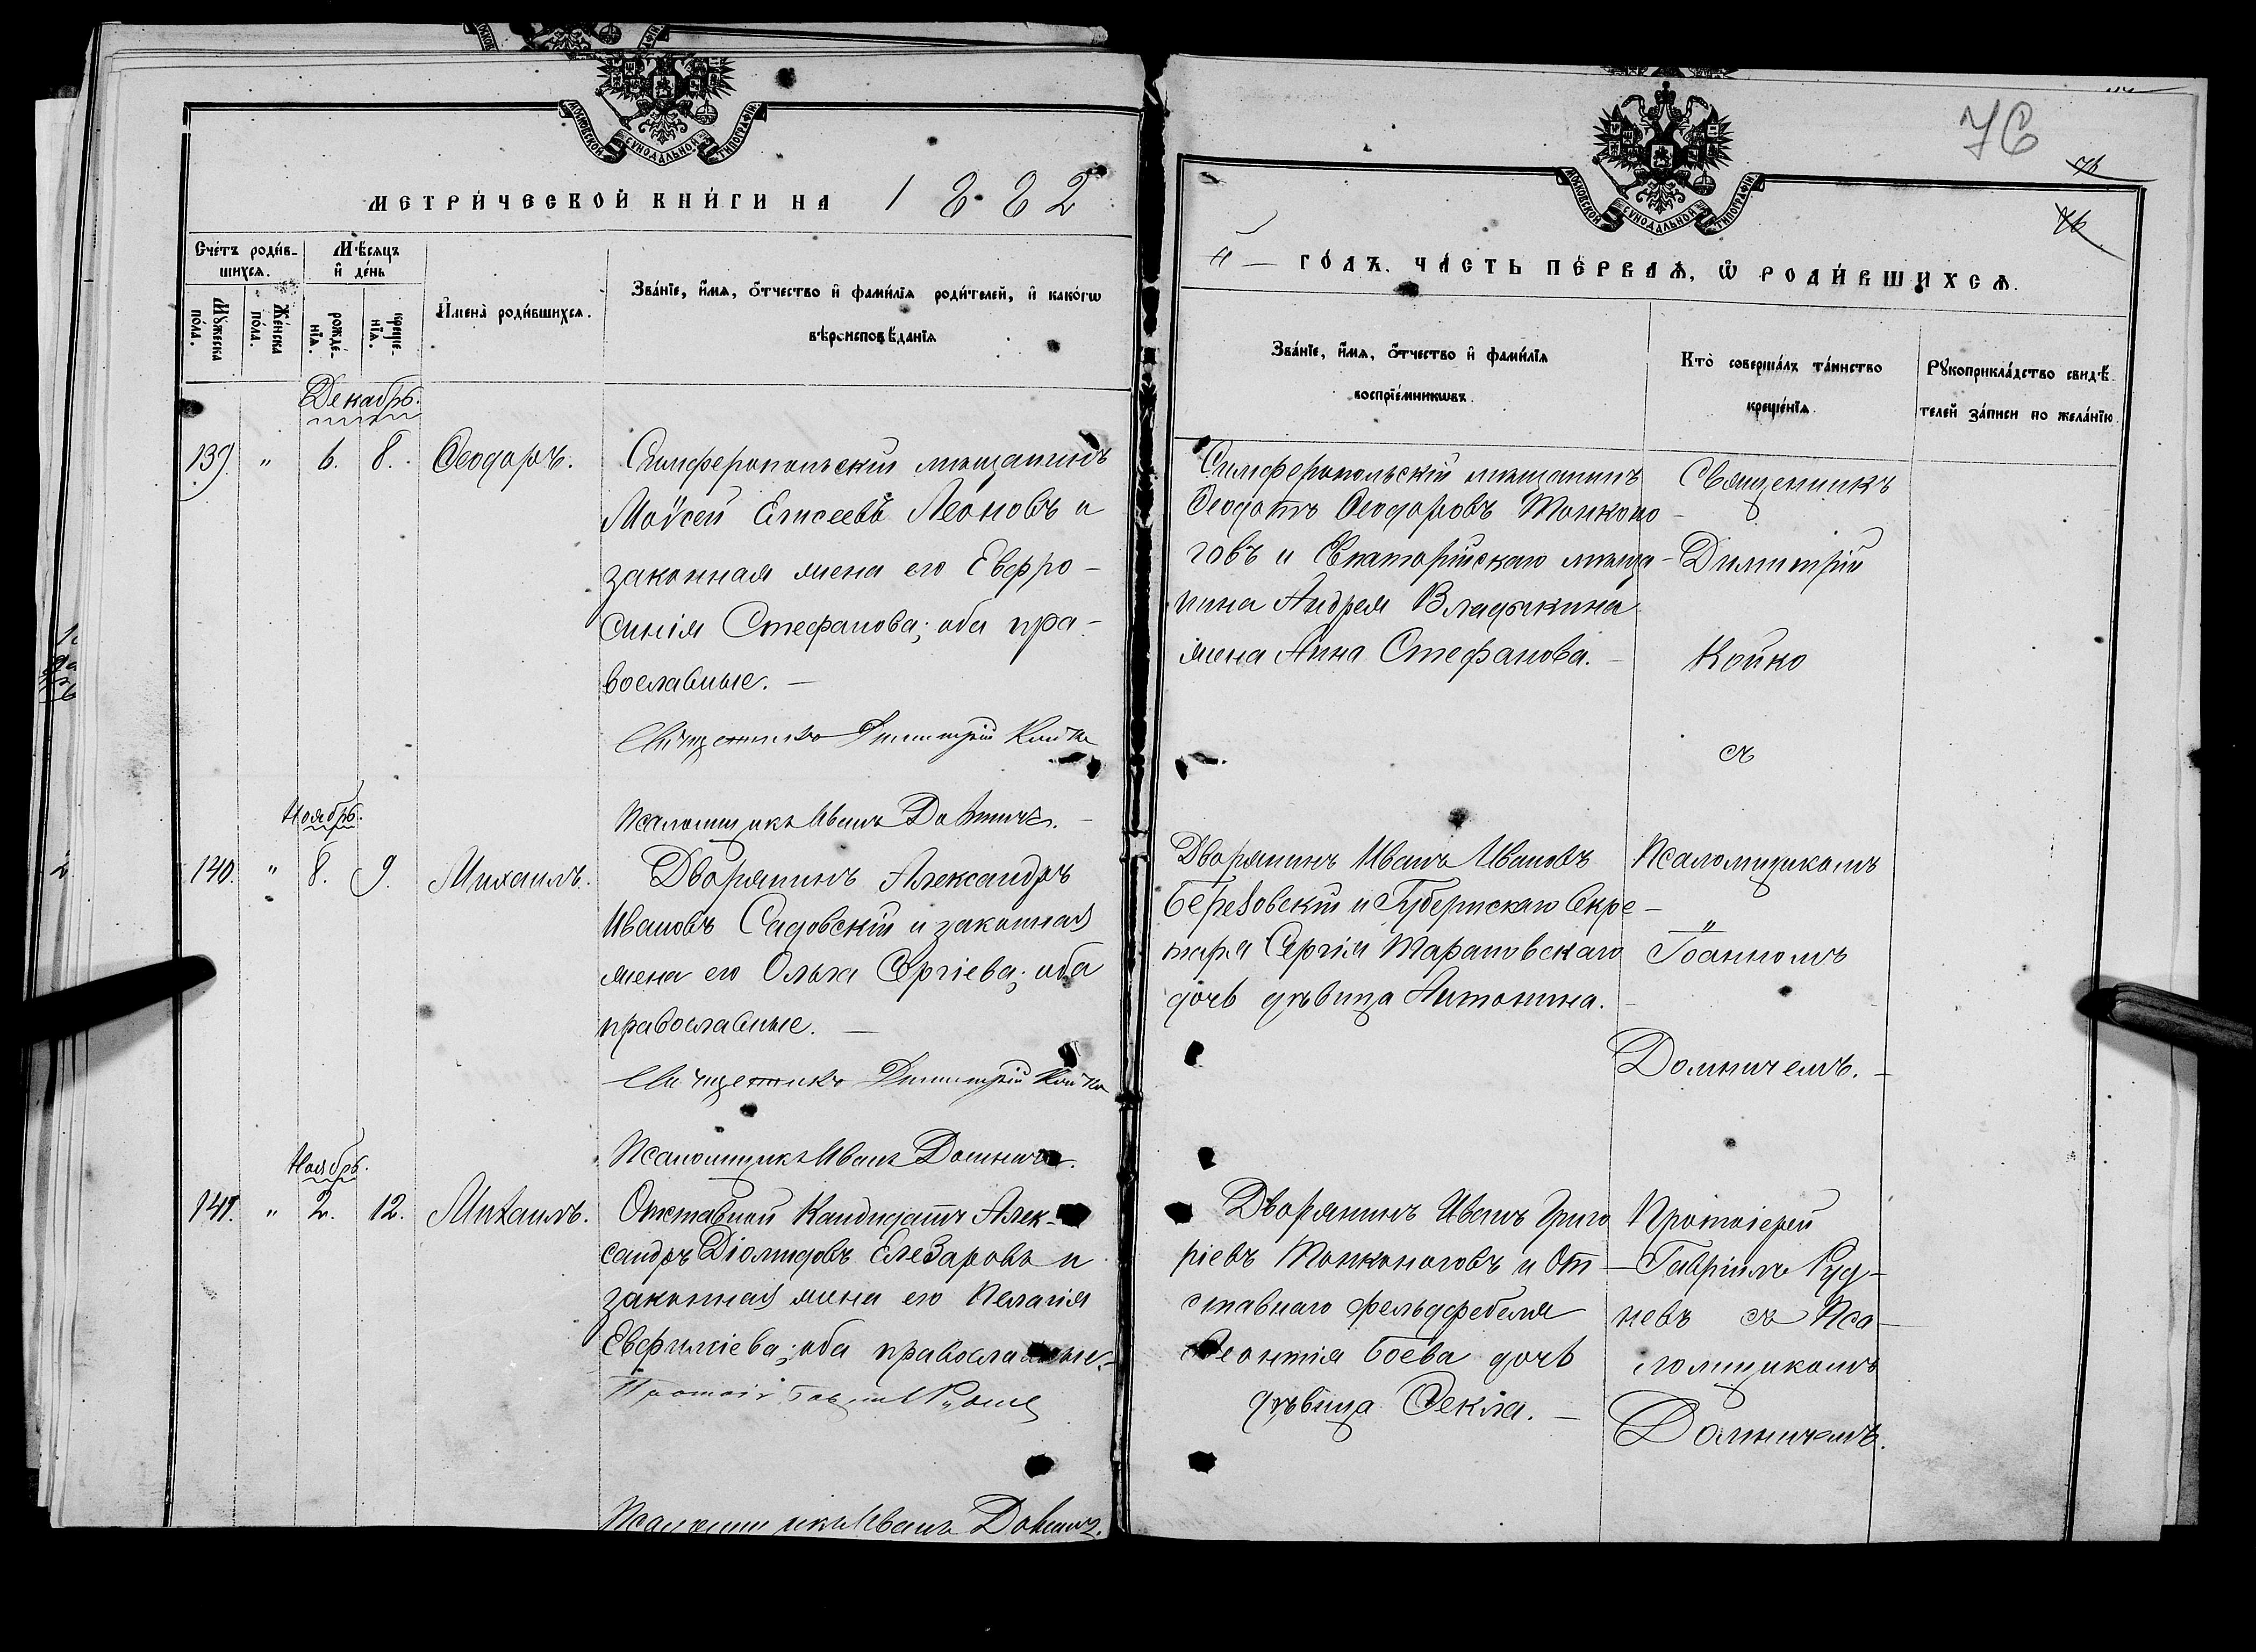 МОСКОВСКОЙ СѴНОДАЛЬНОЙ ТИПОГРАФІИ
МЕТРИ́ЧЕСКОЙ КНИ́ГИ НА 1882
Сче́тъ роди́в-
шихсѧ.
Мѣ́сѧцъ
и҆ де́нь
Мꙋ́жеска
по́ла.
Же́нска
по́ла.
рожде́-
нїѧ.
креще́-
нїѧ.
И҆мена̀ роди́вшихсѧ.
Зва́нїе, и҆́мѧ, ѻ҆́тчество и҆ фами́лїѧ роди́телей, и҆ како́гѡ
вѣроисповѣ́данїѧ
Декабрь.
139. " 6. 8. Ѳеодоръ.
Симферопольскій мѣщанинъ
Моѵсей Елисеевъ Леоновъ и
законная жена его Евфро-
синія Стефанова; оба пра-
вославные. —
Священникъ Димитрій Койко
Псаломщикъ Иванъ Домничъ. —
Ноябрь.
140. " 8. 9. Михаилъ.
Дворянинъ Александръ
Ивановъ Садовскій и законная
жена его Ольга Сергіева; оба
православные. —
Священникъ Димитрій Койко
Псаломщикъ Иванъ Домничъ.
Ноябрь.
141. " 2. 12. Михаилъ.
Отставной Кандидатъ Алек-
сандръ Діомидовъ Елезаровъ и
законная жена его Пелагія
Евфиміева; оба православные. —
Псаломщикъ Иванъ Домничъ.
76
76
76
МОСКОВСКОЙ СѴНОДАЛЬНОЙ ТИПОГРАФІИ
й — ГО́ДЪ. ЧА́СТЬ ПЕ́РВАѦ, Ѡ҆ РОДИ́ВШИХСѦ.
Зва́нїе, и҆́мѧ, ѻ҆́тчество и҆ фами́лїѧ
воспрїе́мникѡвъ.
Кто̀ соверша́лъ та́инство
креще́нїѧ.
Рꙋкоприкла́дство свидѣ́-
телей за́писи по жела́нїю
Симферопольскій мѣщанинъ
Ѳеодотъ Ѳеодоровъ Тонконо-
говъ и Евпаторійскаго мѣща-
нина Андрея Владыкина
жена Анна Стефанова. —
Священникъ
Димитрій
Койко
съ
Дворянинъ Иванъ Ивановъ
Березовскій и Губернскаго Секре-
таря Сергія Тарановскаго
дочь дѣвица Антонина. —
Псаломщикомъ
Іоанномъ
Домничемъ. —
Дворянинъ Иванъ Григо
ріевъ Тонконоговъ и От-
ставнаго фельдфебеля
Леонтія Боева дочь
дѣвица Ѳекла. —
Протоіерей
Гавріилъ Руд-
невъ съ Пса-
ломщикомъ
Домничемъ.